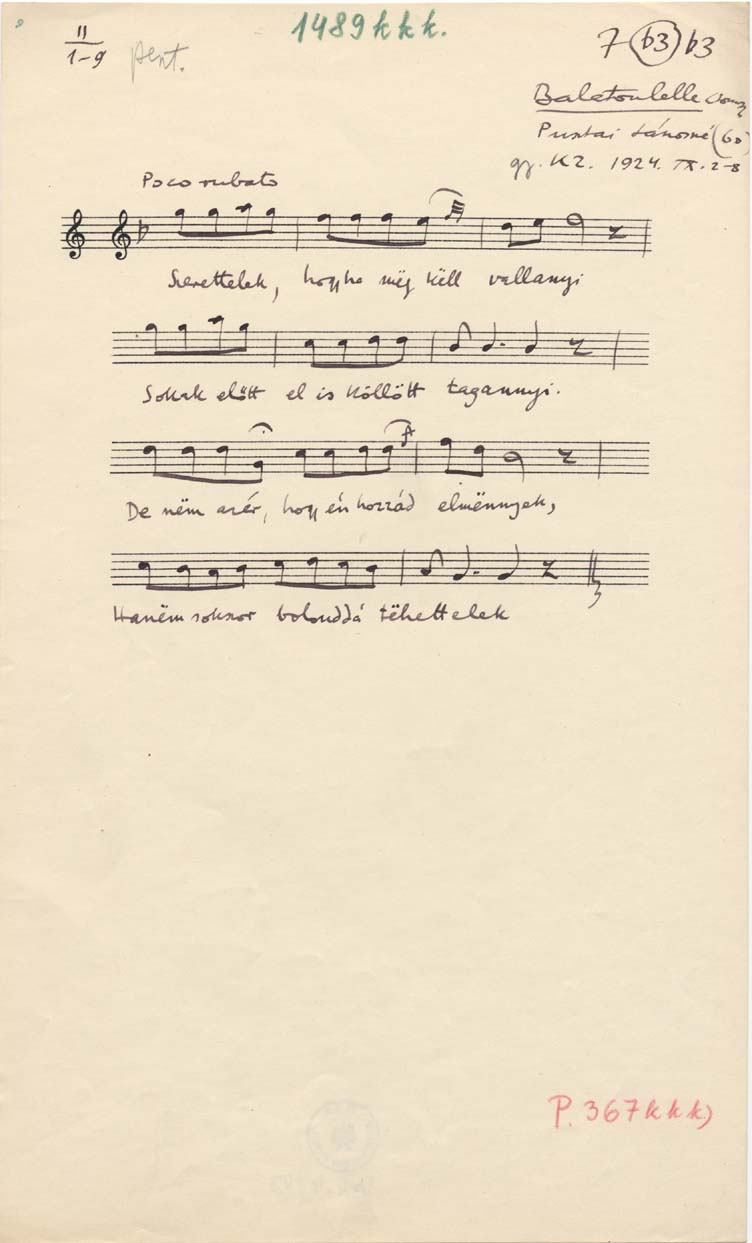 1489kkk.
II
1-9
pent.
7 (b3) b3
Balatonlelle
Pusztai Jánosné (60)
gy. KZ. 1924. IX. 2-8
Poco rubato
Szerettelek, hogyha még këll vallanyi
Sokak előtt el is köllött tagannyi.
De nëm azér, hogy én hozzád elmënnyek,
Hanëm sokszor bolonddá tëhettelek
P. 367kkk)